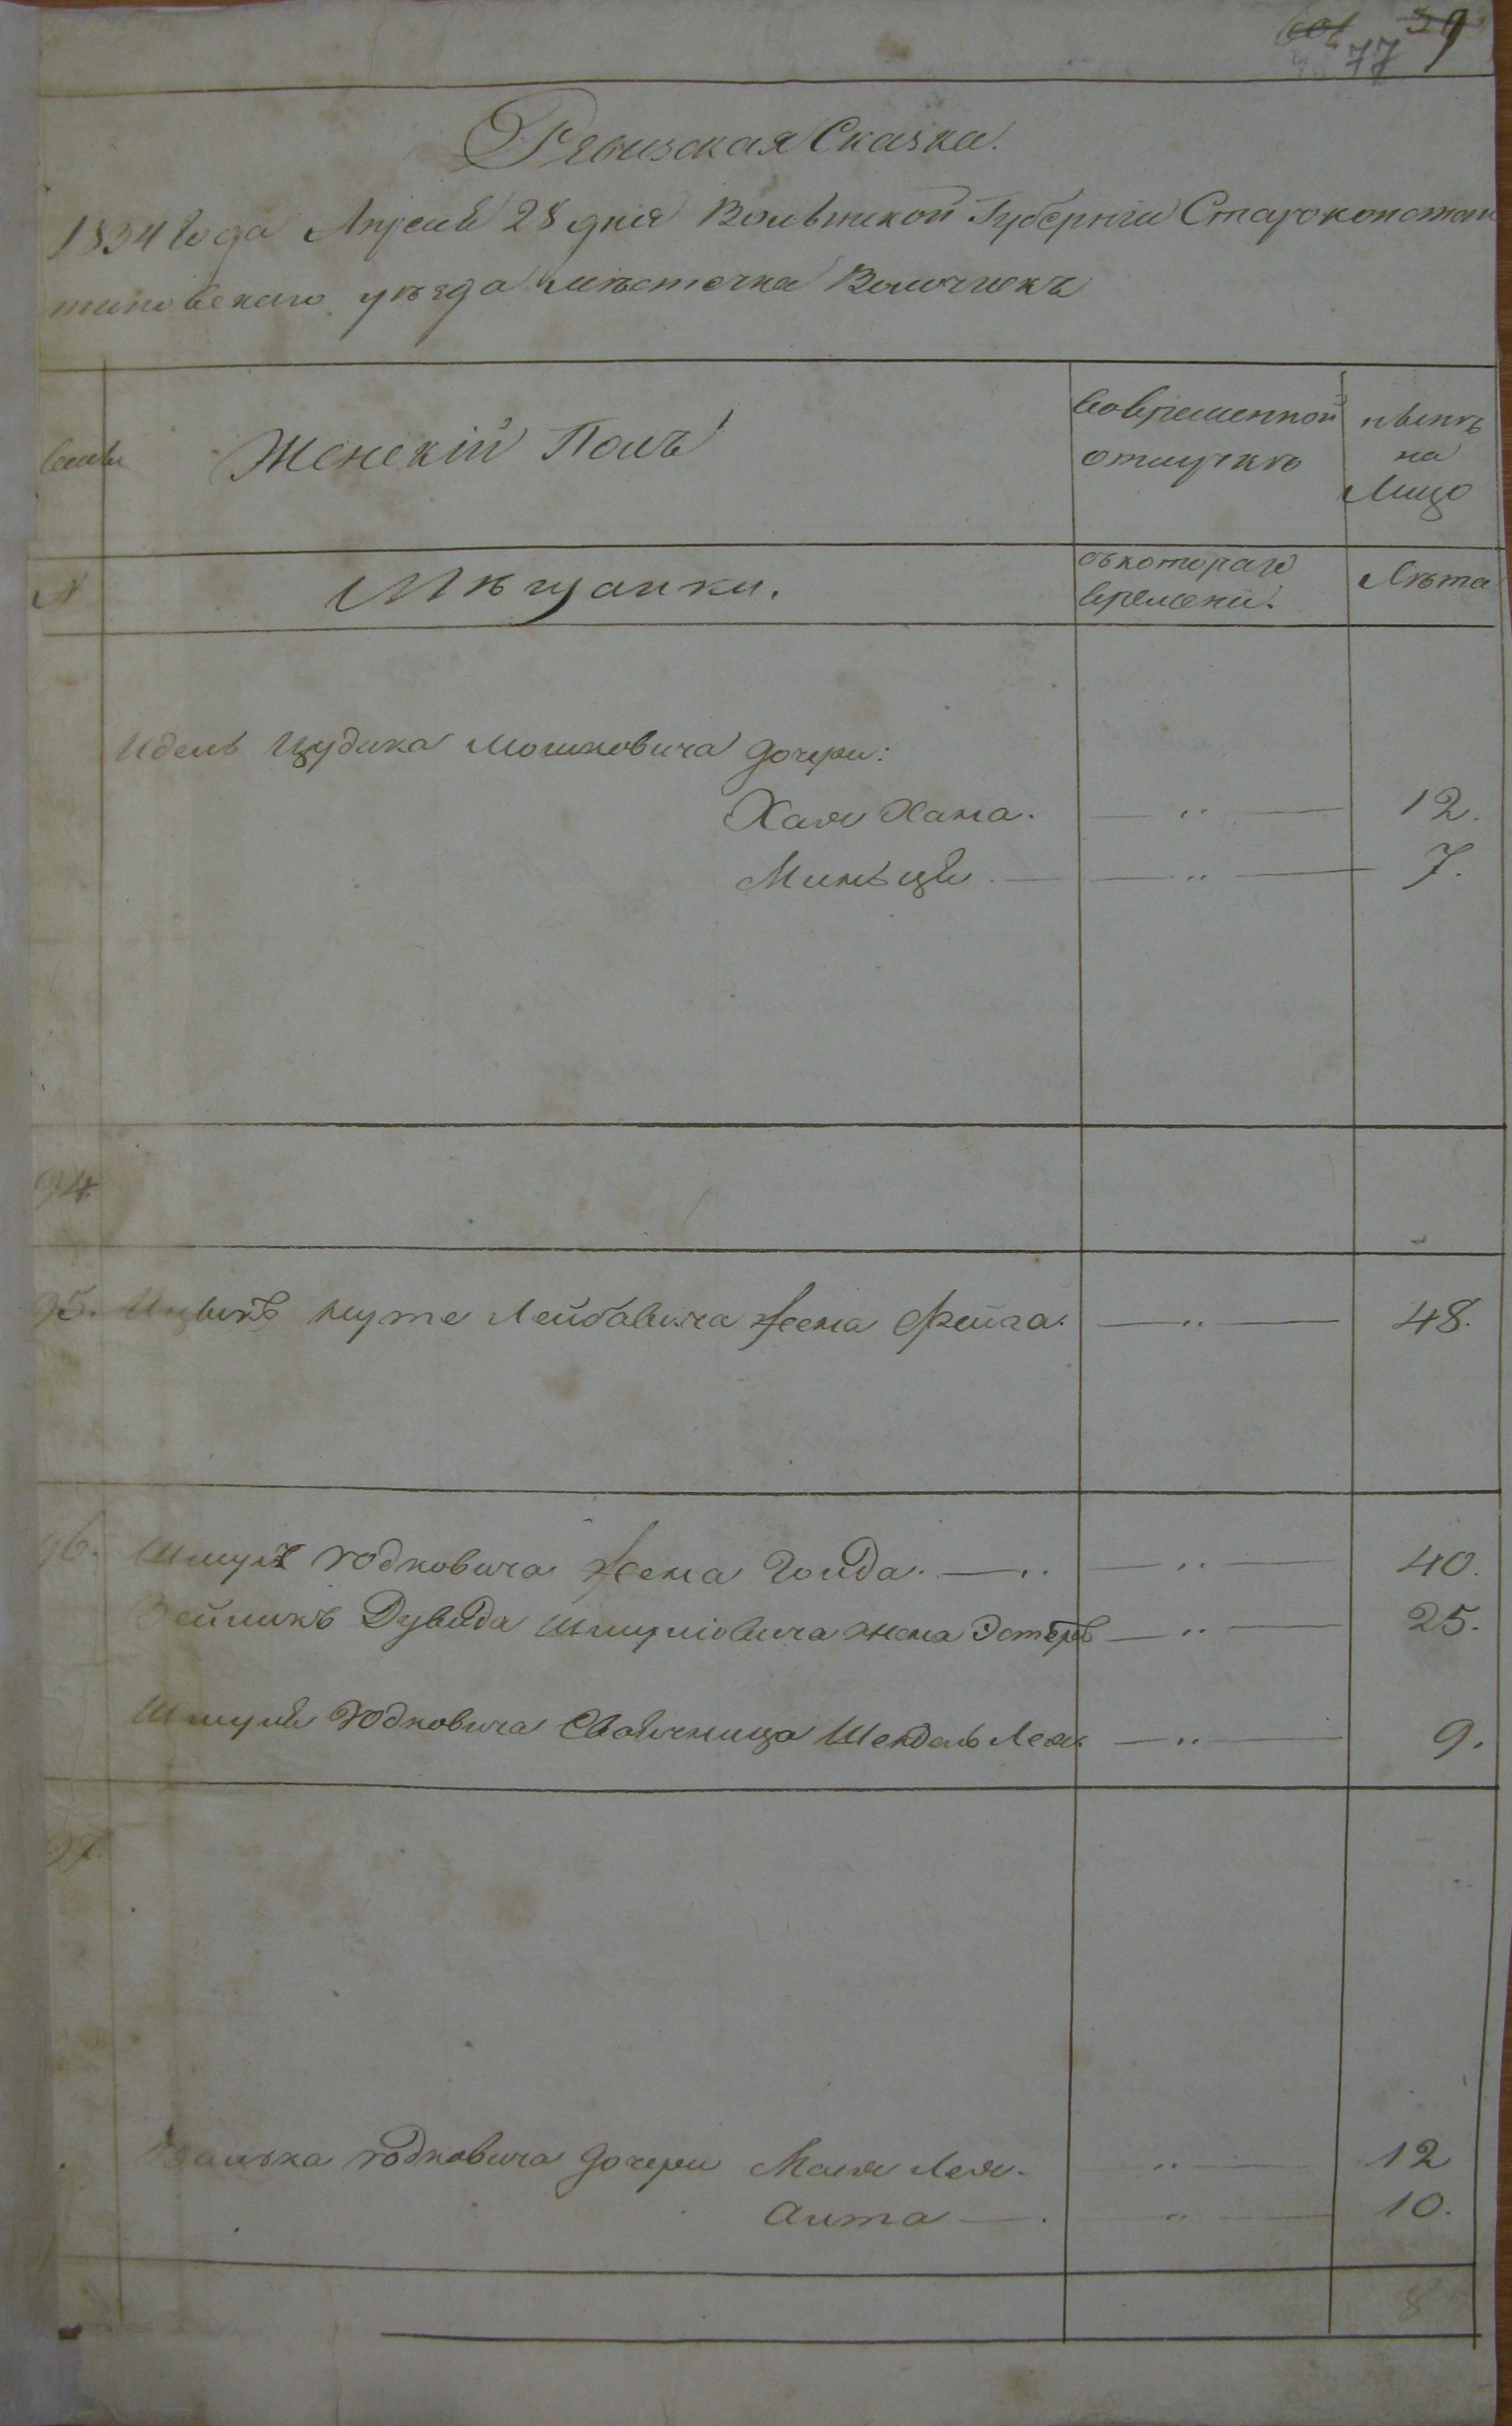 77
Ревизская Сказка.
1834 года Апреля 28 дня Волынской Губернiи Староконстан
тиновского уѣзда мѣстечка Волочискъ
Семьи Женскiй Полъ Вовременной отлучкѣ нынѣ на Лицо
№ Мѣщанки. съкотораго времени. Лѣта
Идель Цудика Мошковича дочери:
Хая Хана. — " — 12.
Миньця. — " — 7.
94.
95. Ицыкъ Нуте Лейбовича жена Фейга. — " — 48.
96. Шмуля Юдковича жена Голда. — " — 40.
Зейликъ Дувида Шмулiовича жена Эстеръ — " — 25.
Шмуля Юдковича Свойчница Шендель Лея. — " — 9.
97.
Юдковича дочери Маля Лея. — " — 12
Аита — " — 10.
8